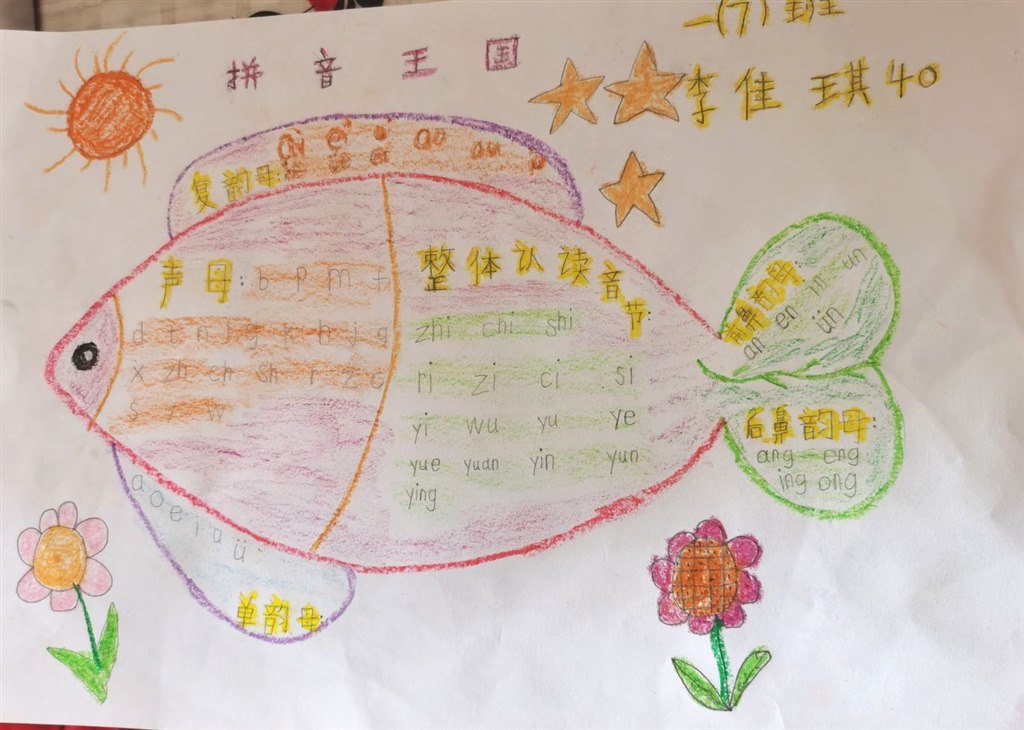 一(7)班
拼音王国
李佳琪40
复韵母:
ai ei ui ao ou iu
ie üe er
声母: b p m f
d t n l g k h j q
x zh ch sh r z c
s y w
整体认读音节:
zhi chi shi
ri zi ci si
yi wu yu ye
yue yuan yin yun
ying
a o e i u ü
单韵母
前鼻韵母:
an en in un
ün
后鼻韵母:
ang eng
ing ong